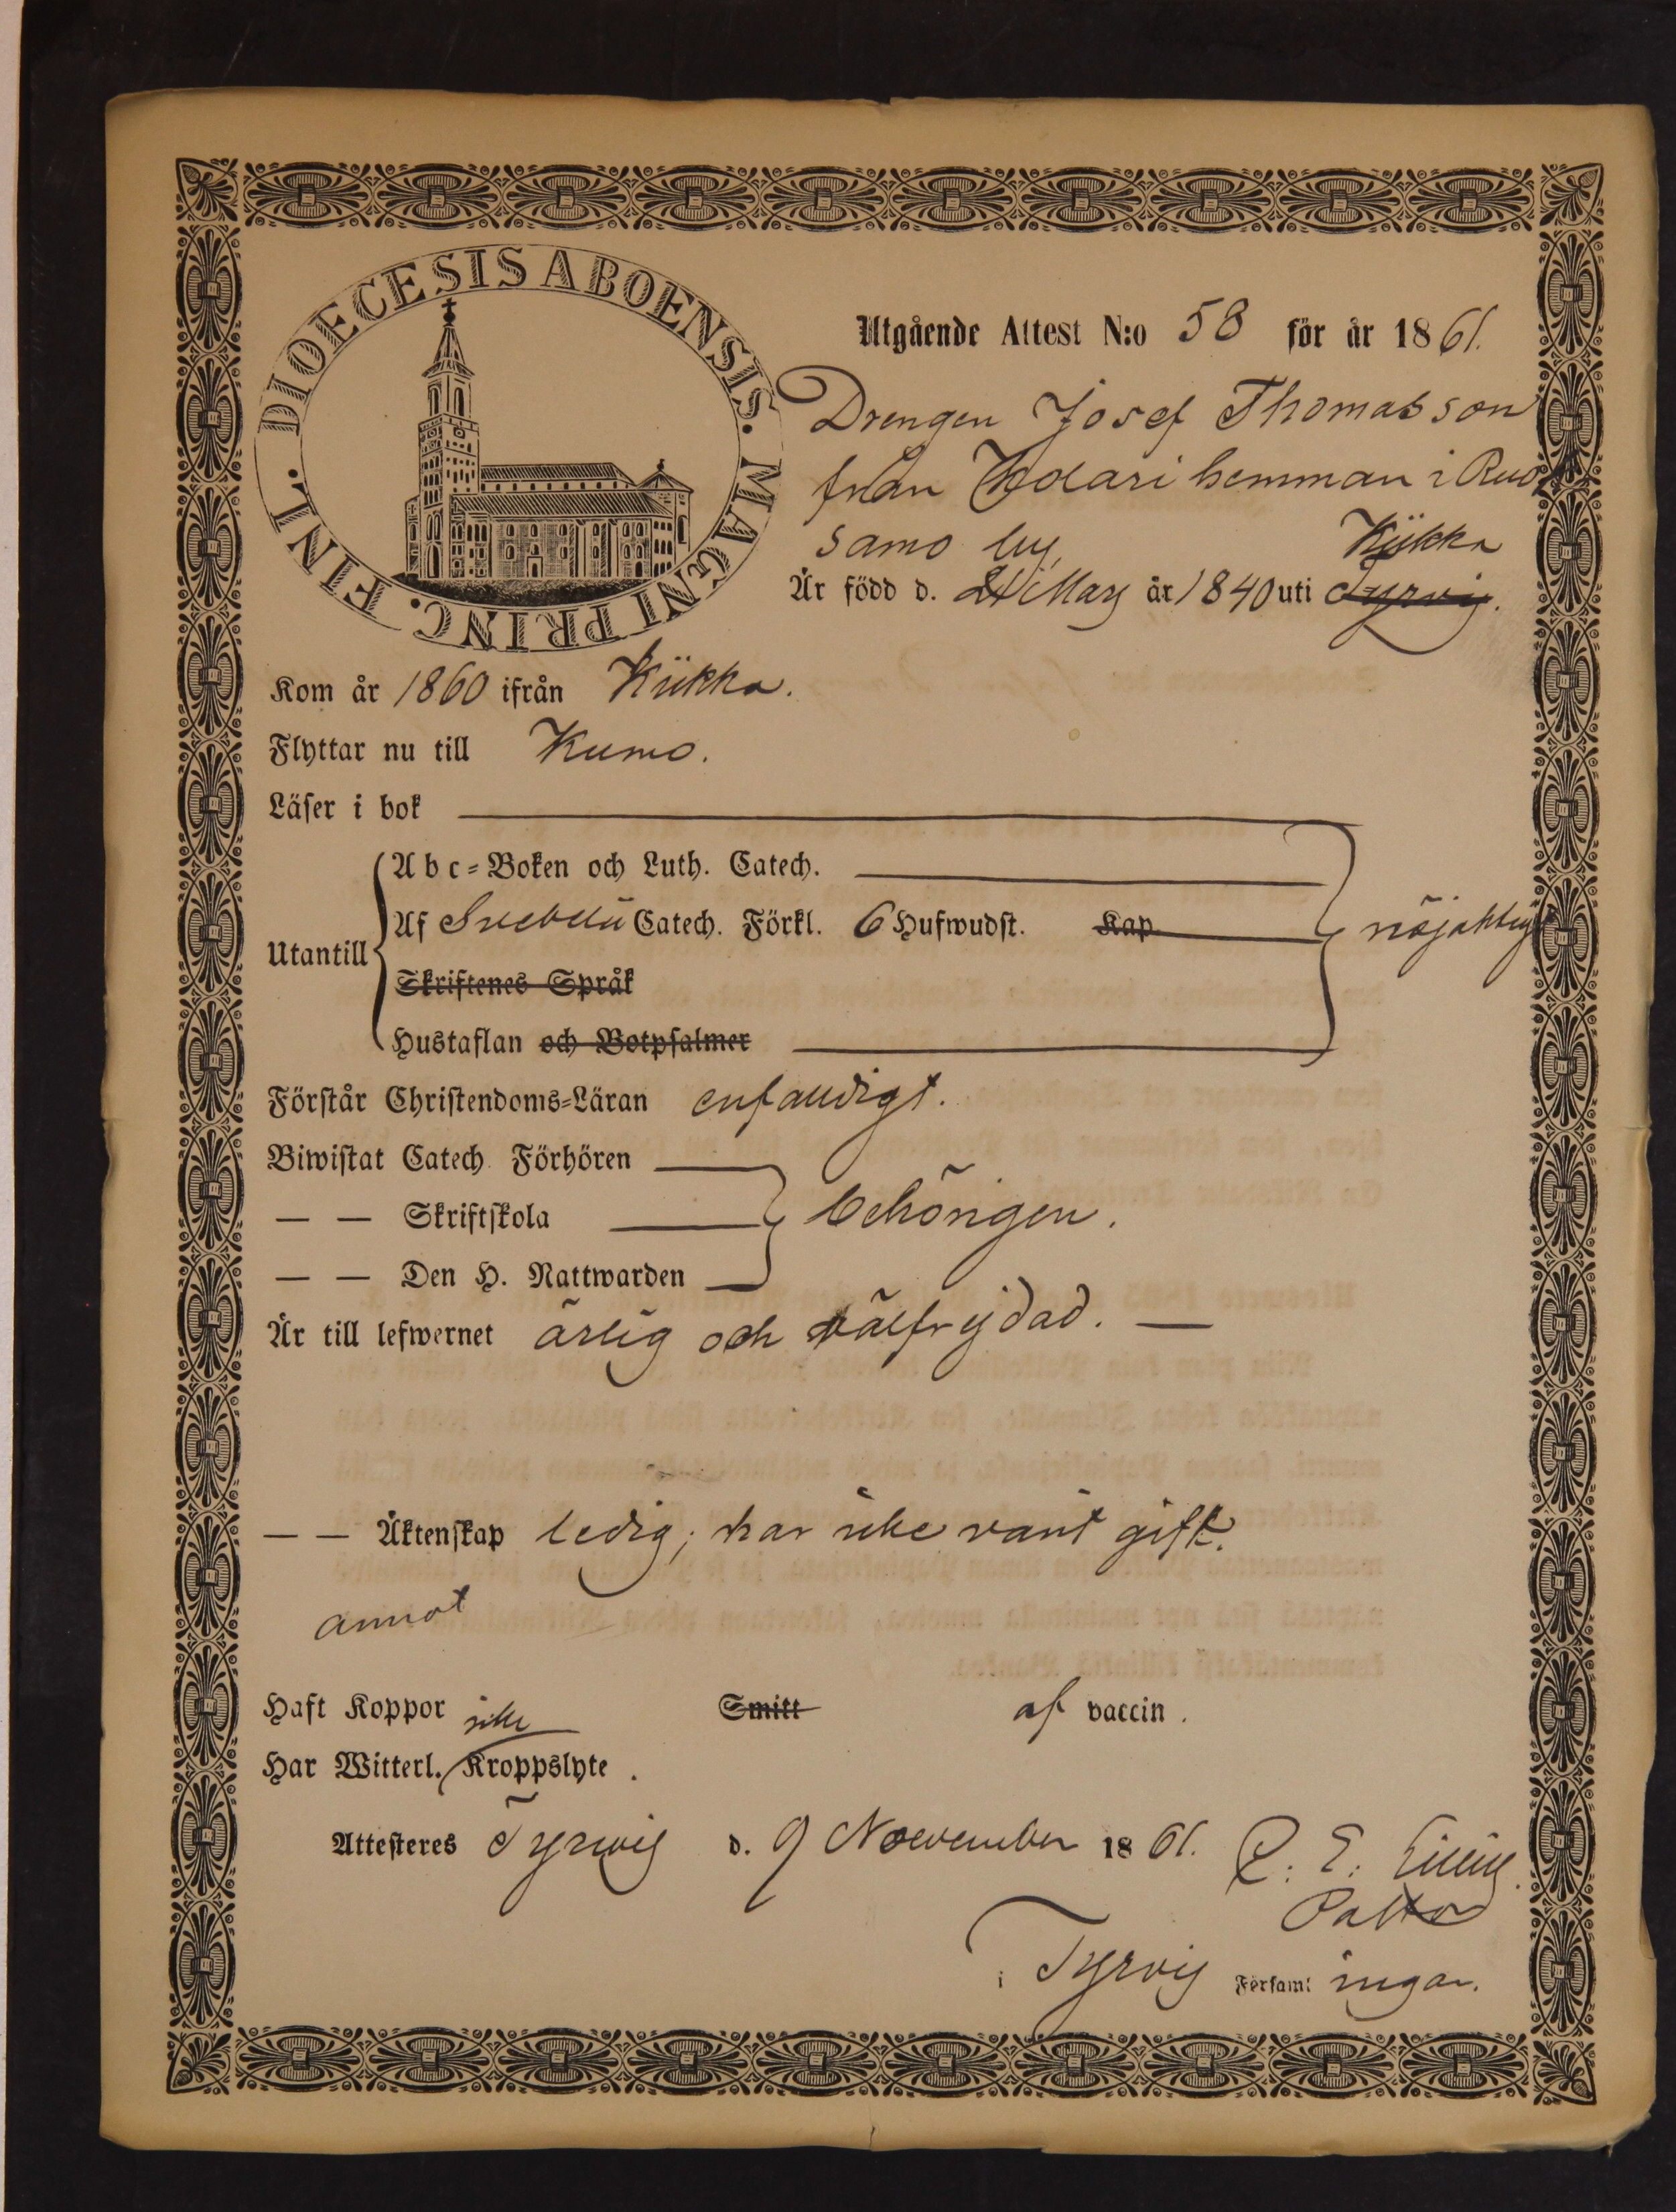 DIOECESIS ABOENSIS. MAGNI PRINC. FINL.
Utgående Attest N:o 58 för år 1861.
Drengen Josef Thomasson
från Hdari hemman i Ruo
samo by, Kiikka
Är född d. 24 Mars år 1840 uti Tyrvis.
Kom år 1860 ifrån Kiikka.
Flyttar nu till Kumo.
Läser i bok
Abc-Boken och Luth. Catech.
Utantill Af Svebelii Catech. Förkl. 6 Hufwudst. Kap nöjaktigt
Skriftenes Språk
Hustaflan och Botpsalmer
Förstår Christendoms-Läran enfaldigt.
Biwistat Catech Förhören
— — Skriftskola behörigen.
— — Den H. Nattwarden
Är till lefwernet ärlig och välfrejdad. —
— — Äktenskap ledig; har icke varit gift.
annot
Haft Koppor Smitt af vaccin.
Har Witterl. icke Kroppslyte.
Attesteres Tyrvis d. 9 November 1861. C. E.
Pastor
i Tyrvis Församl ingar.